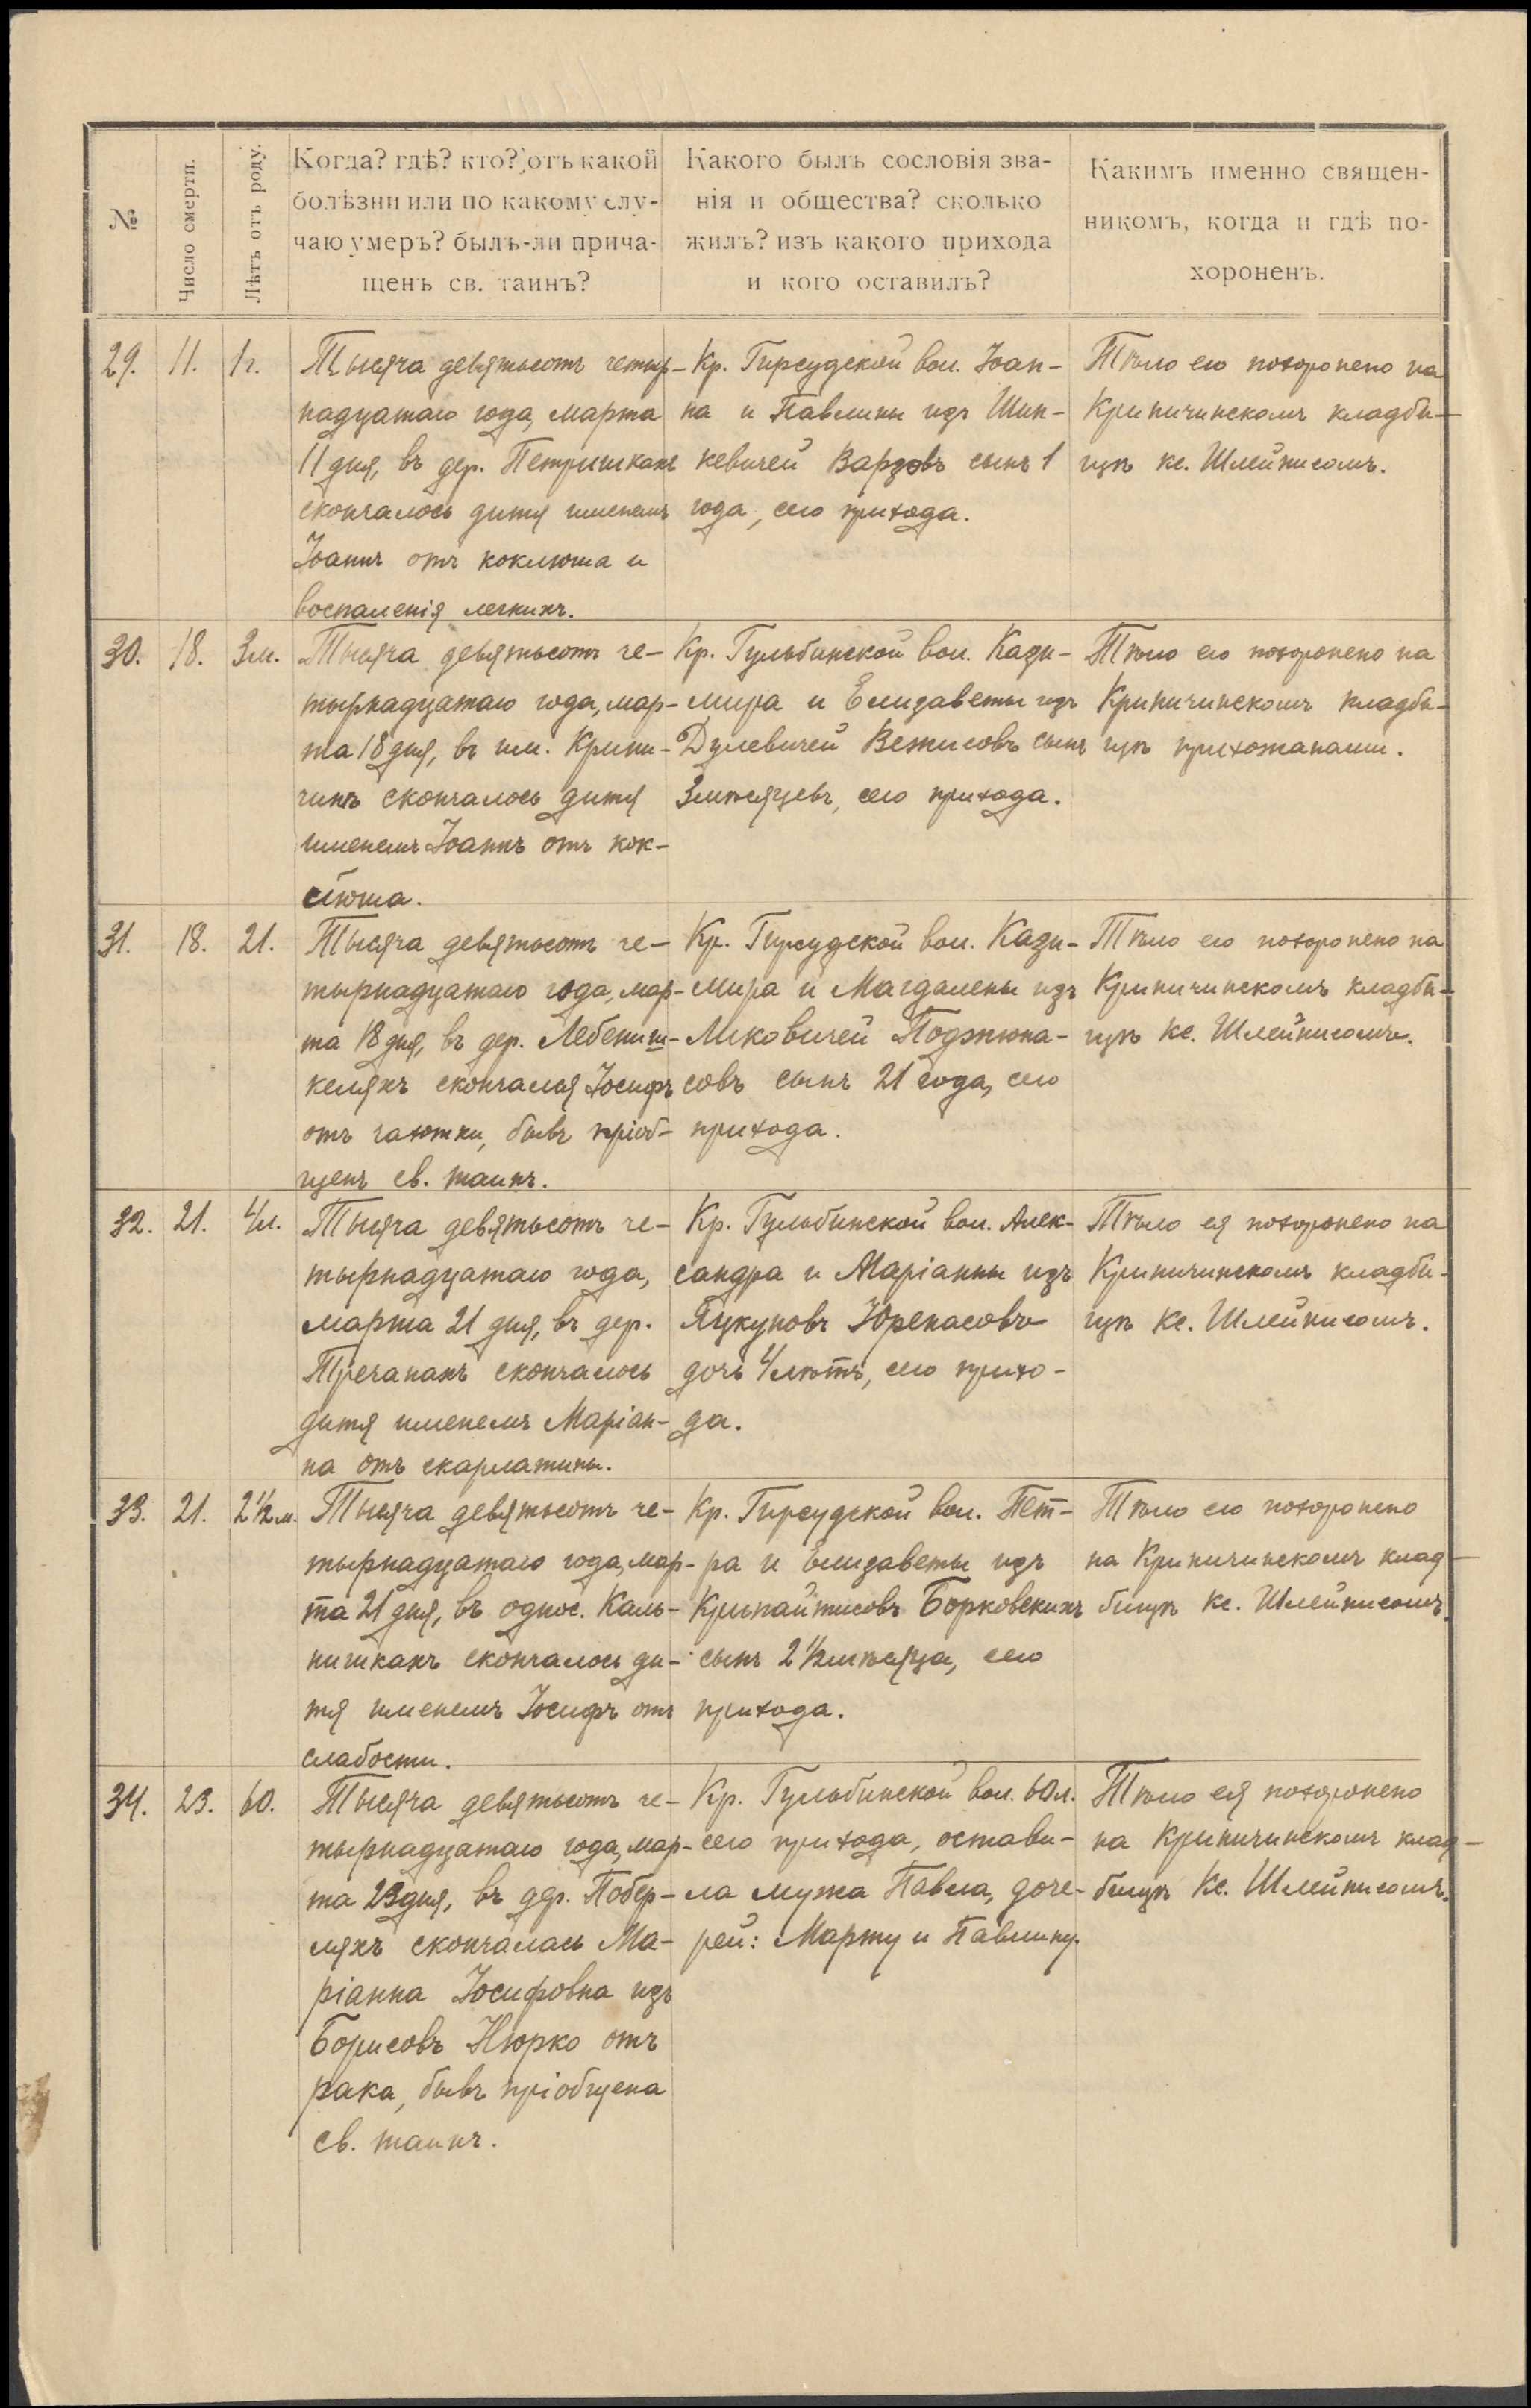 №
Число смерти.
Лѣтъ отъ роду.
Когда? гдѣ? кто? отъ какой
болѣзни или по какому слу-
чаю умеръ? былъ-ли прича-
щенъ св. таинъ?
Какого былъ сословія зва-
нія и общества? сколько
жилъ? изъ какого прихода
и кого оставилъ?
Какимъ именно священ-
никомъ, когда и гдѣ по-
хороненъ.
29.
11.
1 г.
Тысяча девятьсотъ четыр-
надцатаго года, марта
11 дня, въ дер. Петришкахъ
скончалось дитя именемъ
Іоаннъ отъ коклюша и
воспаленія легкихъ.
Кр. Гирсудской вол. Іоан-
на и Павлины изъ Шин-
кевичей Варзовъ сынъ 1
года, сего прихода.
Тѣло его похоронено на
Криничинскомъ кладби-
щѣ кс. Шлейнисомъ.
30.
18.
3 м.
Тысяча девятьсотъ че-
тырнадцатаго года, мар-
та 18 дня, въ им. Крини-
чинъ скончалось дитя
именемъ Іоаннъ отъ кок-
люша.
Кр. Гульбинской вол. Кази-
мира и Елизаветы изъ
Дулевичей Вежисовъ сынъ
3 мѣсяцевъ, сего прихода.
Тѣло его похоронено на
Криничинскомъ кладби-
щѣ прихожанами.
31.
18.
21.
Тысяча девятьсотъ че-
тырнадцатаго года, мар-
та 18 дня, въ дер. Лебениш-
келяхъ скончался Іосифъ
отъ чахотки, бывъ пріоб-
щенъ св. таинъ.
Кр. Гирсудской вол. Кази-
мира и Магдалены изъ
Ликовичей Поджюна-
совъ сынъ 21 года, сего
прихода.
Тѣло его похоронено на
Криничинскомъ кладби-
щѣ кс. Шлейнисомъ.
32.
21.
4 л.
Тысяча девятьсотъ че-
тырнадцатаго года,
марта 21 дня, въ дер.
Тречанахъ скончалось
дитя именемъ Маріан-
на отъ скарлатины.
Кр. Гульбинской вол. Алек-
сандра и Маріанны изъ
Яцкуновъ Юренасовъ
дочь 4 лѣтъ, сего прихо-
да.
Тѣло ея похоронено на
Криничинскомъ кладби-
щѣ кс. Шлейнисомъ.
33.
21.
2 ½ м.
Тысяча девятьсотъ че-
тырнадцатаго года, мар-
та 21 дня, въ однос. Каль-
нишкахъ скончалось ди-
тя именемъ Іосифъ отъ
слабости.
Кр. Гирсудской вол. Пет-
ра и Елизаветы изъ
Борковскихъ
сынъ 2 ½ мѣсяца, сего
прихода.
Тѣло его похоронено
на Криничинскомъ клад-
бищѣ кс. Шлейнисомъ.
34.
23.
60.
Тысяча девятьсотъ че-
тырнадцатаго года, мар-
та 23 дня, въ дер. Побер-
ляхъ скончалась Ма-
ріанна Іосифовна изъ
Борисовъ Нюрко отъ
рака, бывъ пріобщена
св. таинъ.
Кр. Гульбинской вол. 60 л.
сего прихода, остави-
ла мужа Павла, доче-
рей: Марту и Павлину.
Тѣло ея похоронено
на Криничинскомъ клад-
бищѣ кс. Шлейнисомъ.